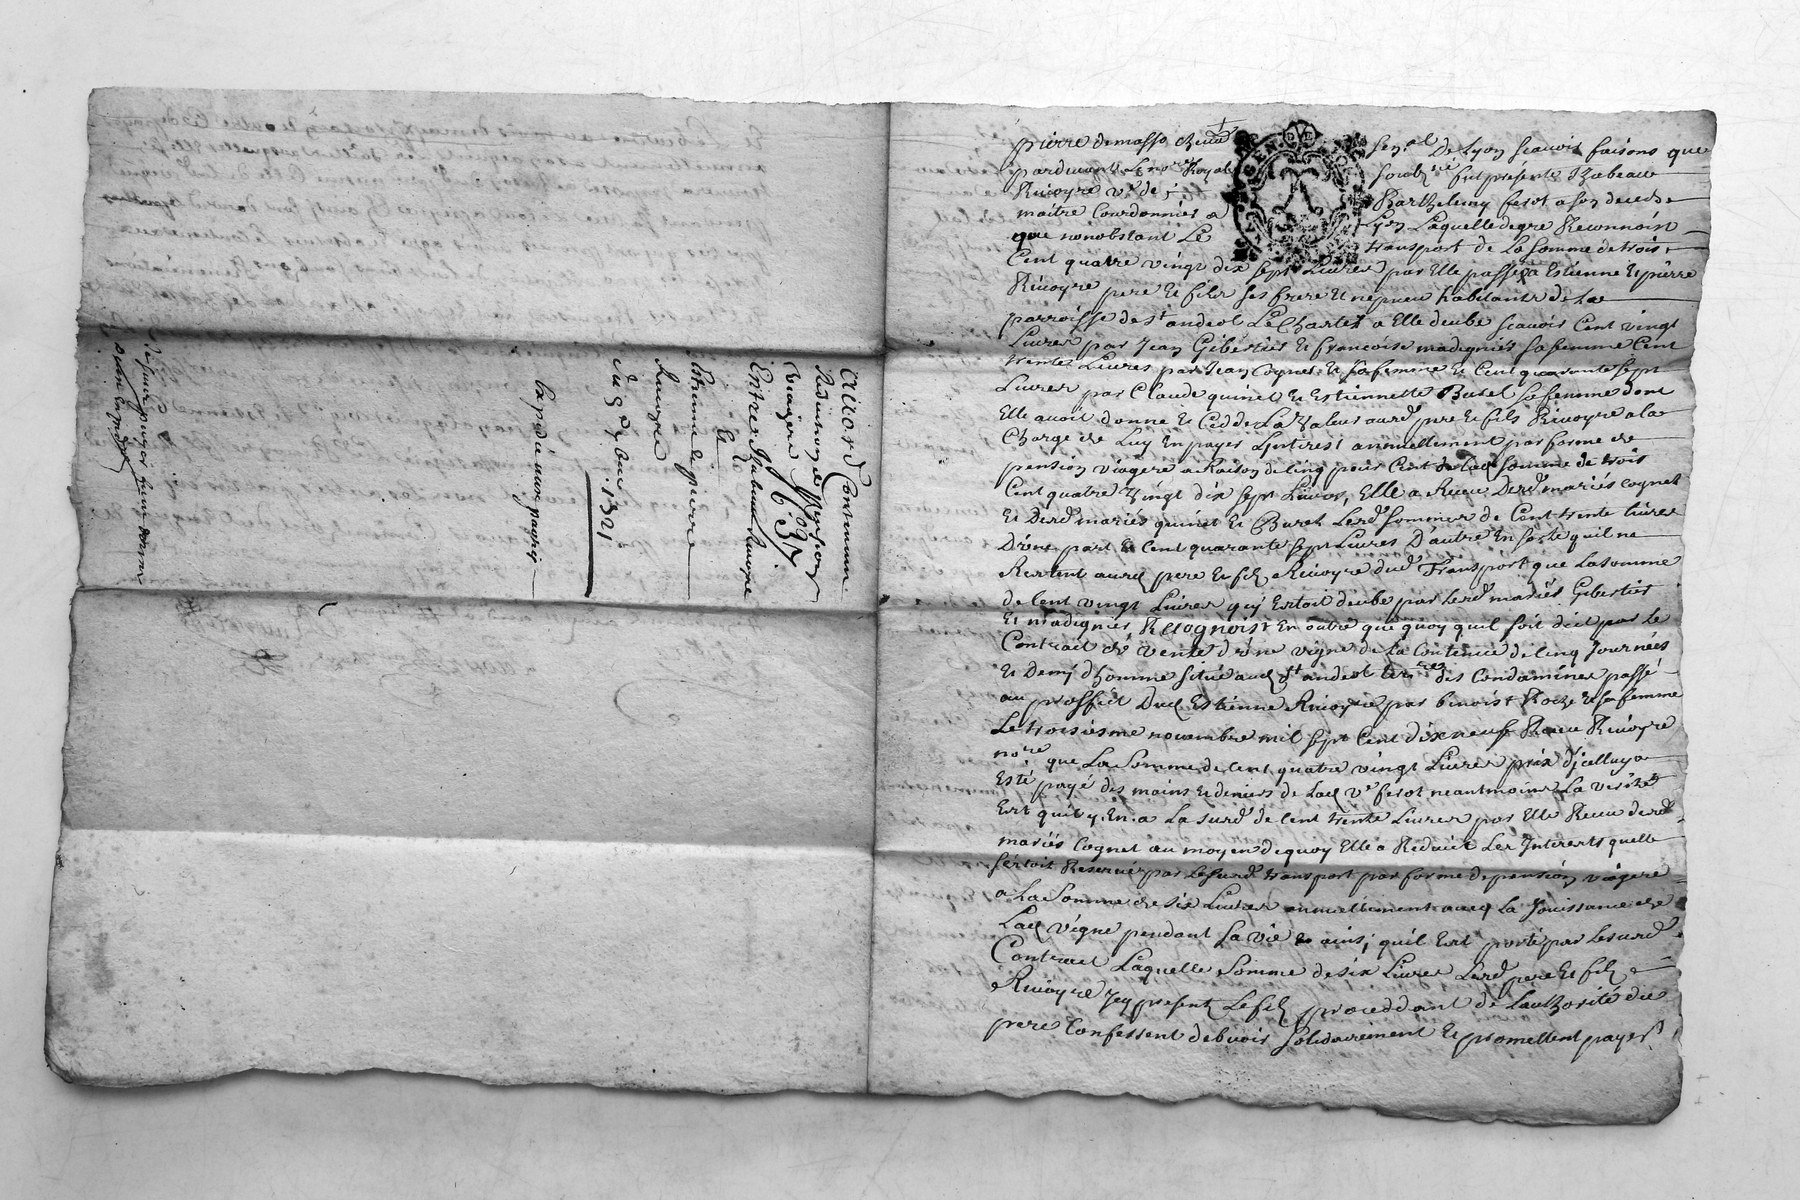 pierre demasso
senal De Lyon scavoir faisons que
pardevant Le nore Royal
soubné fut présente Izabeau
Rivoyre ve de
Barthelemy ferot a son deceds
maitre Courdonnier a
Lyon Laquelle de gre Reconnoist
que nonobstant Le
transport de La somme de trois
Cent quatre vingt dix sept Livres par Elle passé a Estienne Et pierre
Rivoyre pere Et fils ses frere Et nepveu habitants de La
parroisse de st andeol Le Chatel a Elle deube scavoir Cent vingt
Livres par Jean Gibertier Et francoise madignier sa femme Cent
trente Livres par Jean Cognet Et sa femme Et Cent quarante sept
Livres par Claude quinet Et Estiennette Burel sa femme dont
Elle avoit donne Et Cedde La valeur aud pere Et fils Rivoyre a la
Charge de Luy En payer Linterest annuellement par forme de
pension viagere a Raison de Cinq pour Cent de lad somme de trois
Cent quatre vingt dix sept Livres, Elle a Receu Desd mariés Cognet
Et Desd mariés quinet Et Burel Lesd sommes de Cent trente Livres
D'une part Et Cent quarante sept Livres D'autre En sorte quil ne
Restent ausd pere Et fils Rivoyre dud Transport que La somme
de Cent vingt Livres quy Estoit deube par Lesd mariés Gibertier
Et madignier, Recognoist En outre que quoy quil soit dict par le
Contrait de vente d'une vigne de La Contenue de Cinq Journées
Et Demy dhomme située aud st andeol terre des Condamines passé
au proffict Dud Estienne Rivoyre par benoist Roche Et sa femme
Le troisiesme novembre mil sept Cent dix neuf Receu Rivoyre
nore que La Somme de Cent quatre vingt Livres prix d'jcelluy a
Esté payé des mains Et deniers de Lad ve ferot neantmoins La verité
Est quil y En a La susd de Cent trente Livres par Elle Receu desd
mariés Cognet au moyen dequoy Elle a Reduict Les Interests quelle
s'estoit Reservés par Le susd transport par forme de pension viagere
a La Somme de six Livres annuellement avec La Jouissance de
Lad vigne pendant sa vie Et ainsi quil Est porté par Le susd
Contract Laquelle Somme de six Livres Lesd pere Et fils
Rivoyre Jcy presents Le fils proceddant de Lauthorité du
pere Confessent debvoir solidairement Et promettent payer
accord Contenant
Reduction de pension
viagere
Entre Isabeau Rivoyre
Et
Estienne Et pierre
Rivoyre
Du 9 1721
la pd ne vaux payer